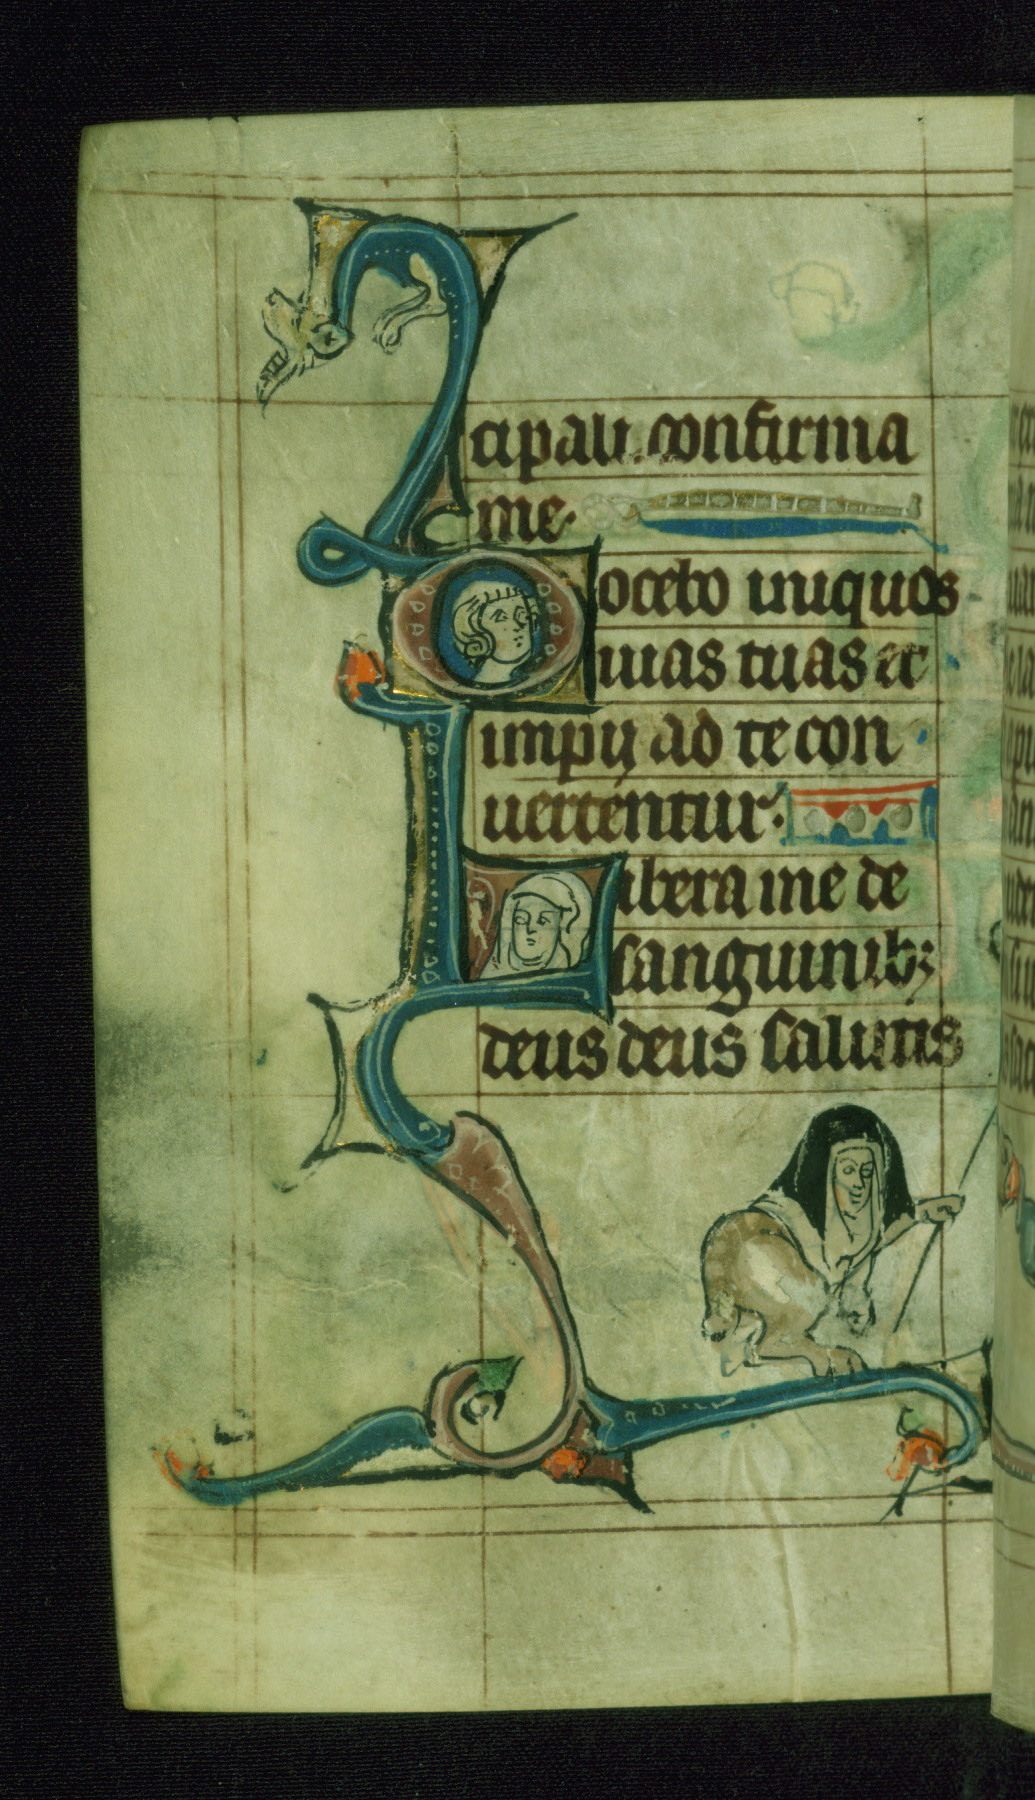 cipali confirma
me.
Docebo iniquos
uias tuas et
impij ad te con
uertentur.
Libera me de
sanguinib;
deus deus salutis